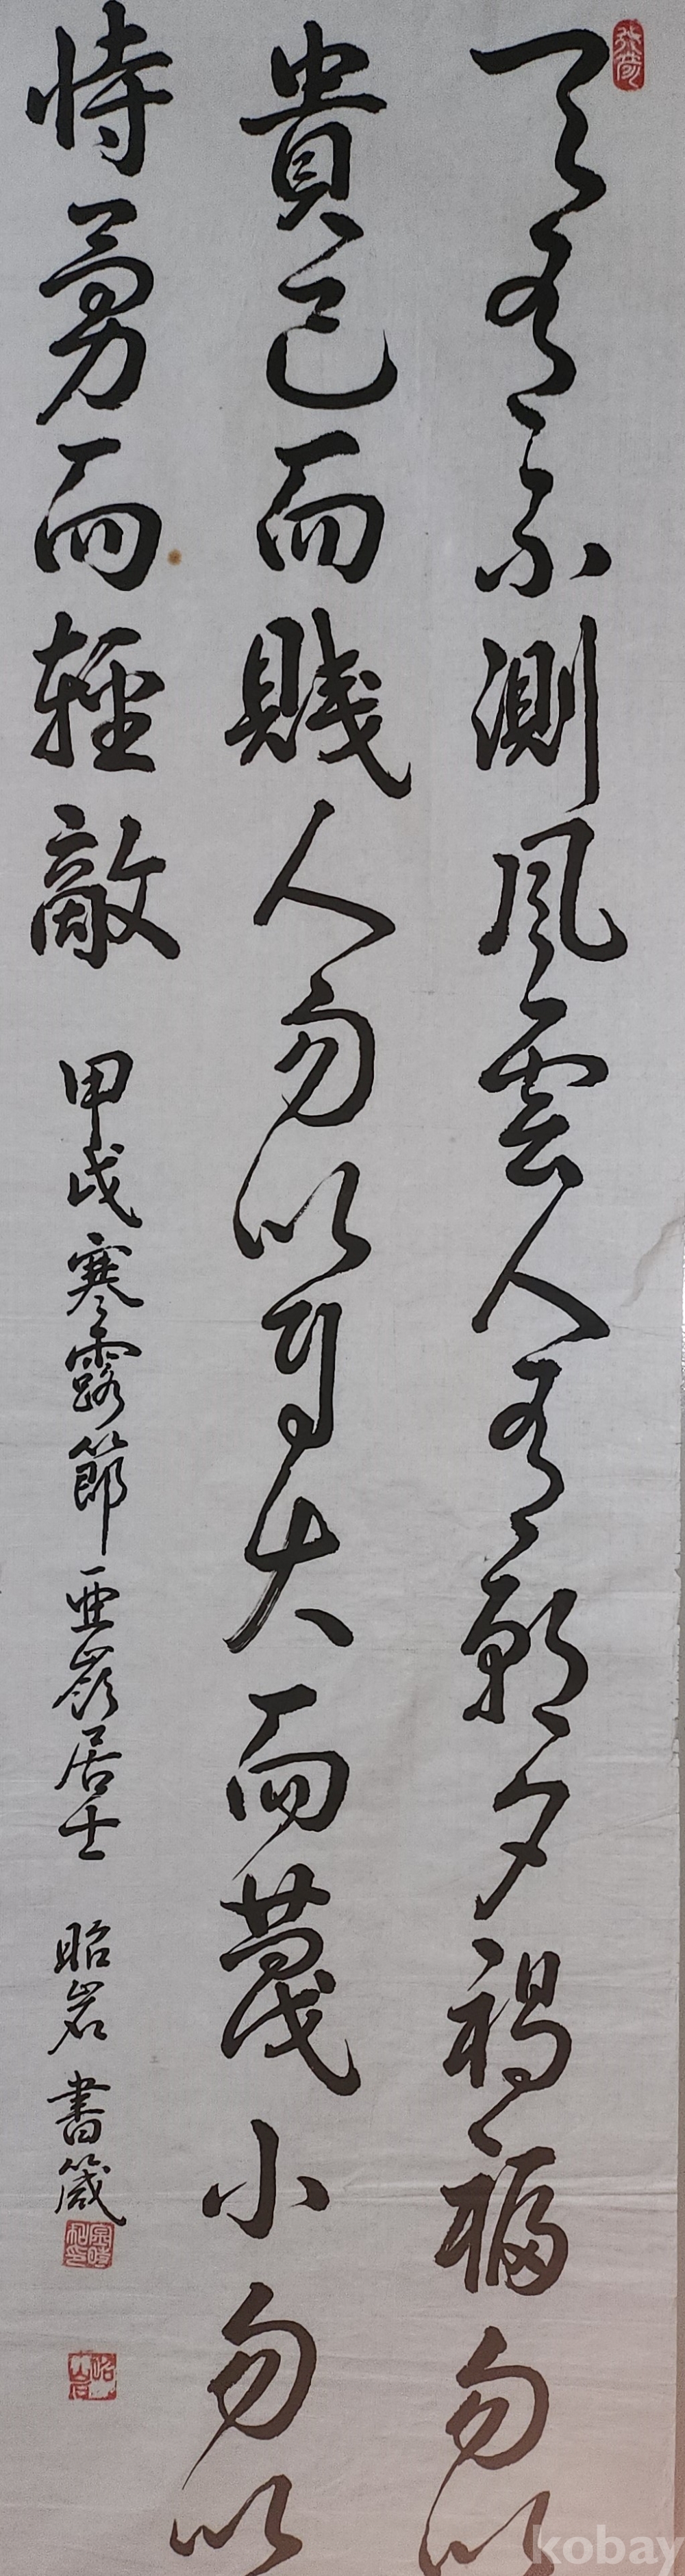 天有不測風雲人有朝夕禍福勿以
貴己而賤人勿以自大而蔑小勿以
恃勇而輕敵 甲戌寒露節 亞嶺居士 昭岩 書箴
kobay